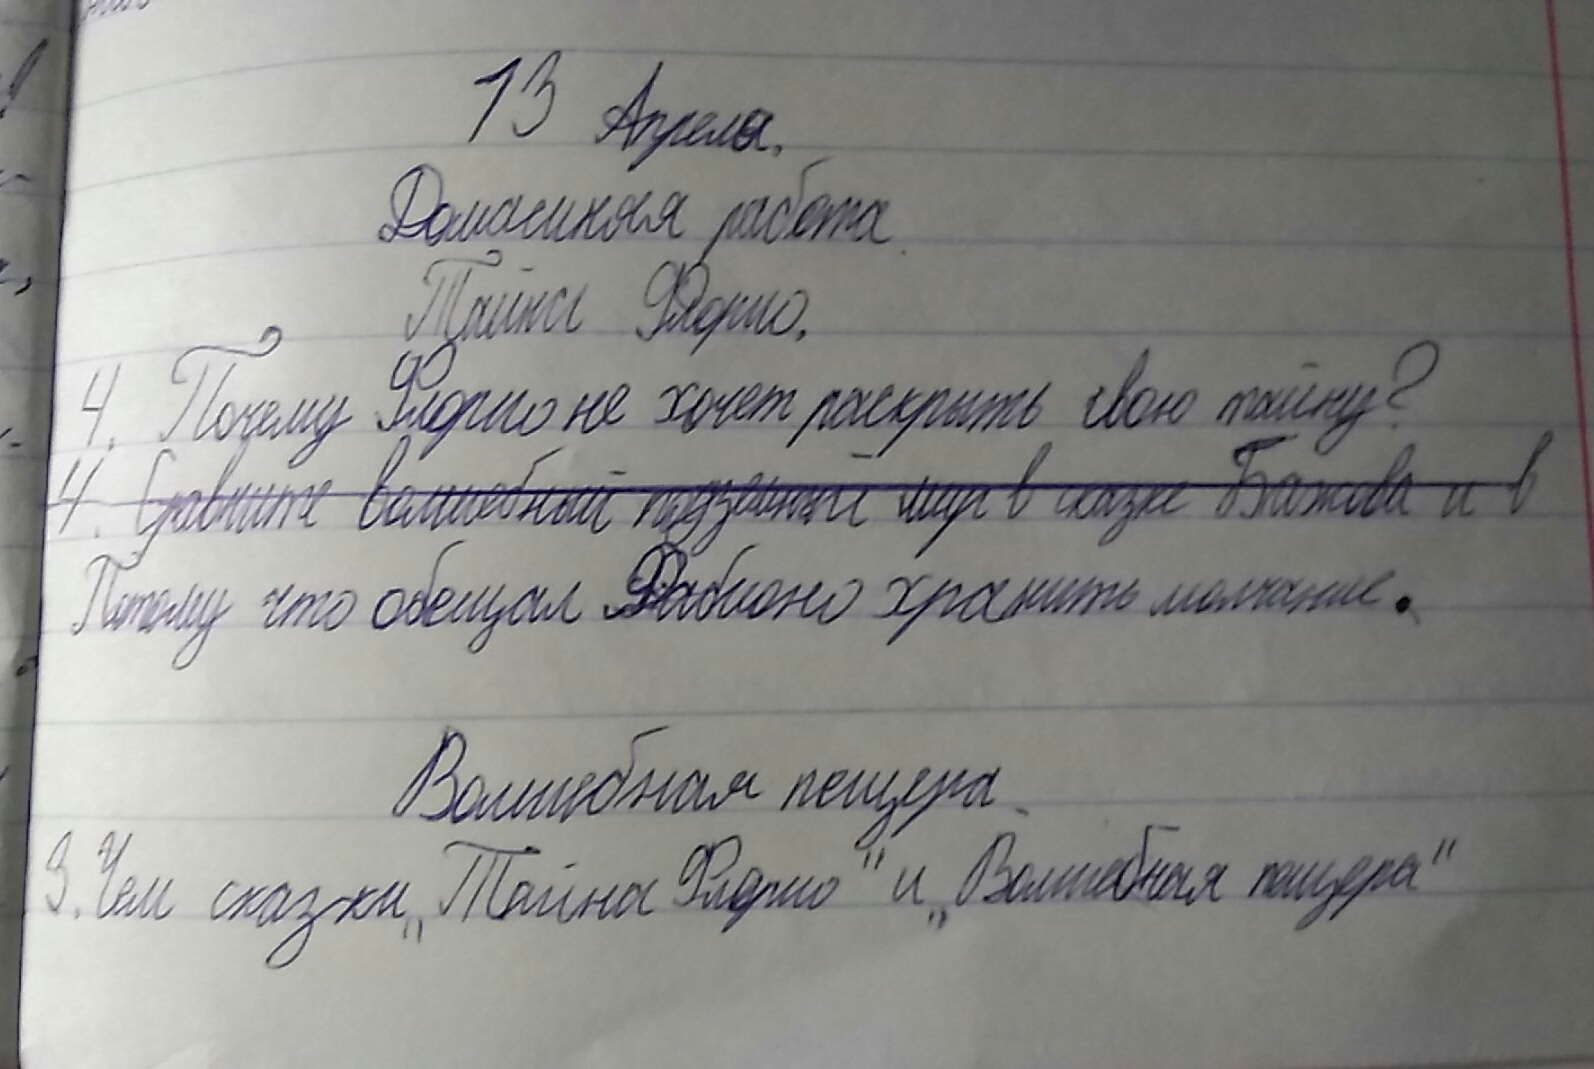 13 Апреля.
Домашняя работа.
Тайны Флорио.
4. Почему Флорио не хочет раскрыть свою тайну?
4. Сравните волшебный подземный мир в сказке Бажова и в
Потому что обещал Фабиано хранить молчание.
Волшебная пещера.
3. Чем сказки „Тайна Флорио" и „Волшебная пещера"